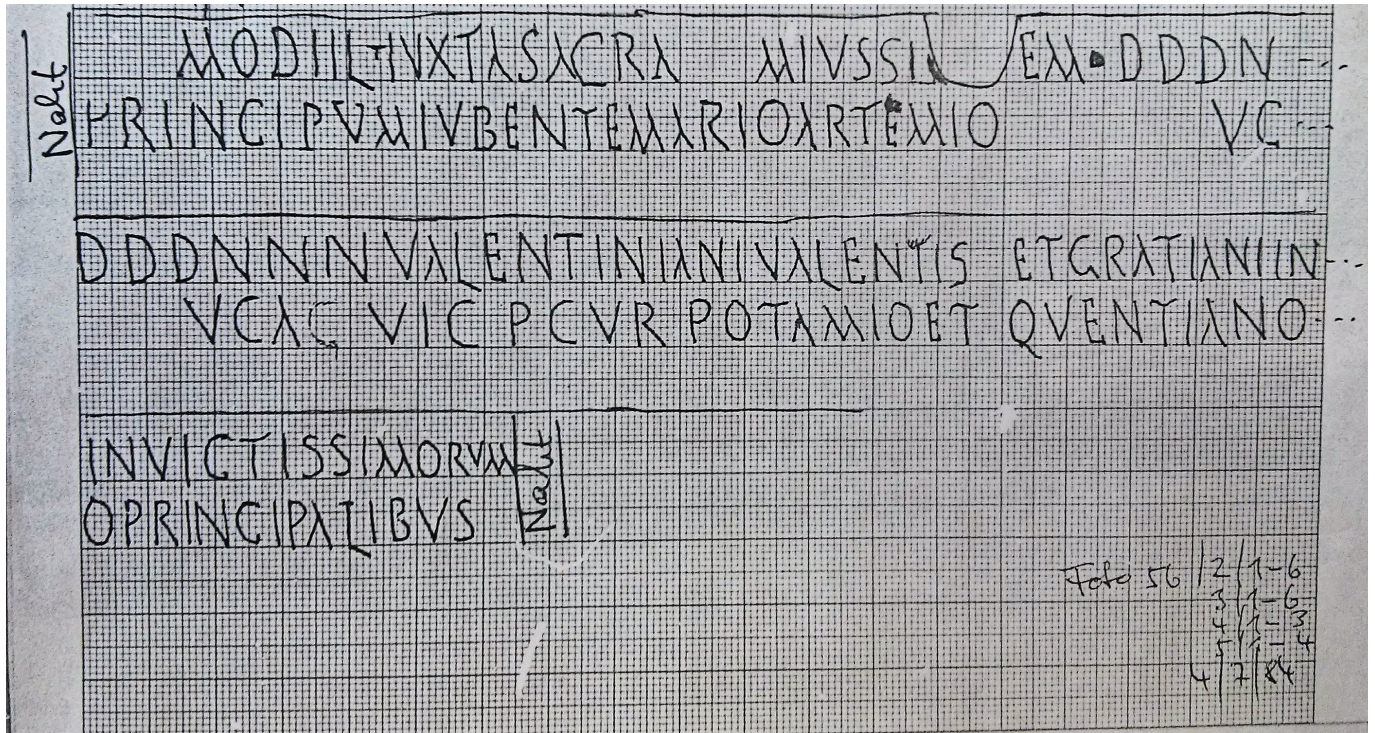 Naht
MODIIL IVXTASACRA MIVSSI EM·DDDN ---
PRINCIPVMIVBENTEMARIOARTEMIO VC ---
DDDNNNVALENTINIANIVALENTIS ETGRATIANIIN---
VCAC VIC PCVR POTAMIOET QVENTIANO---
INVICTISSIMORVM
OPRINCIPALIBVS
Naht
Foto 56/2/1-6
3/1-6
4/1-3
5/1-4
4/7/84